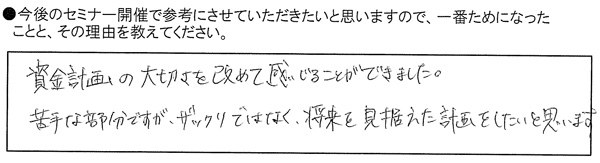 ●今後のセミナー開催で参考にさせていただきたいと思いますので、一番ためになった
ことと、その理由を教えてください。
資金計画の大切さを改めて感じることができました。
苦手な部分ですが、ザックリではなく、将来を見据えた計画をしたいと思います